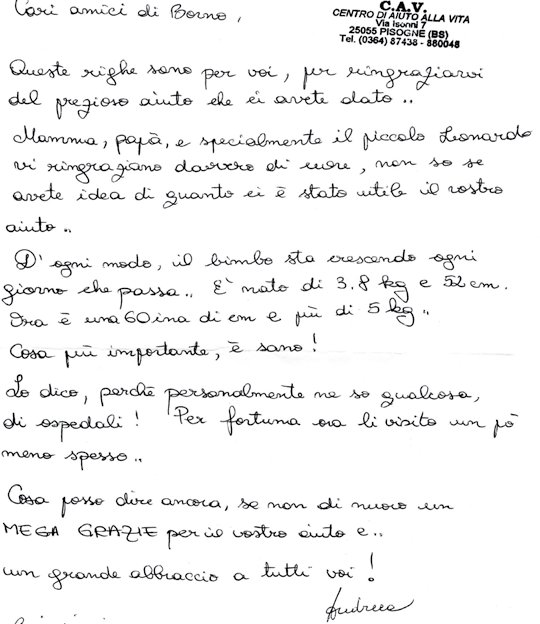 Cari amici di Borno,
C.A.V.
CENTRO DI AIUTO ALLA VITA
Via Isonni 7
25055 PISOGNE (BS)
Tel. (0364) 87438 - 880048
Queste righe sono per voi, per ringraziarvi
del prezioso aiuto che ci avete dato..
Mamma, papà, e specialmente il piccolo Leonardo
vi ringraziano davvero di cuore, non so se
avete idea di quanto ci è stato utile il vostro
aiuto..
D'ogni modo, il bimbo sta crescendo ogni
giorno che passa.. E' nato di 3.8 kg e 52 cm.
Ora è una 60ina di cm e più di 5 kg..
Cosa più importante, è sano!
Lo dico, perchè personalmente ne so qualcosa,
di ospedali! Per fortuna ora li visito un pò
meno spesso..
Cosa posso dire ancora, se non di nuovo un
MEGA GRAZIE per il vostro aiuto e..
un grande abbraccio a tutti voi!
Andrea